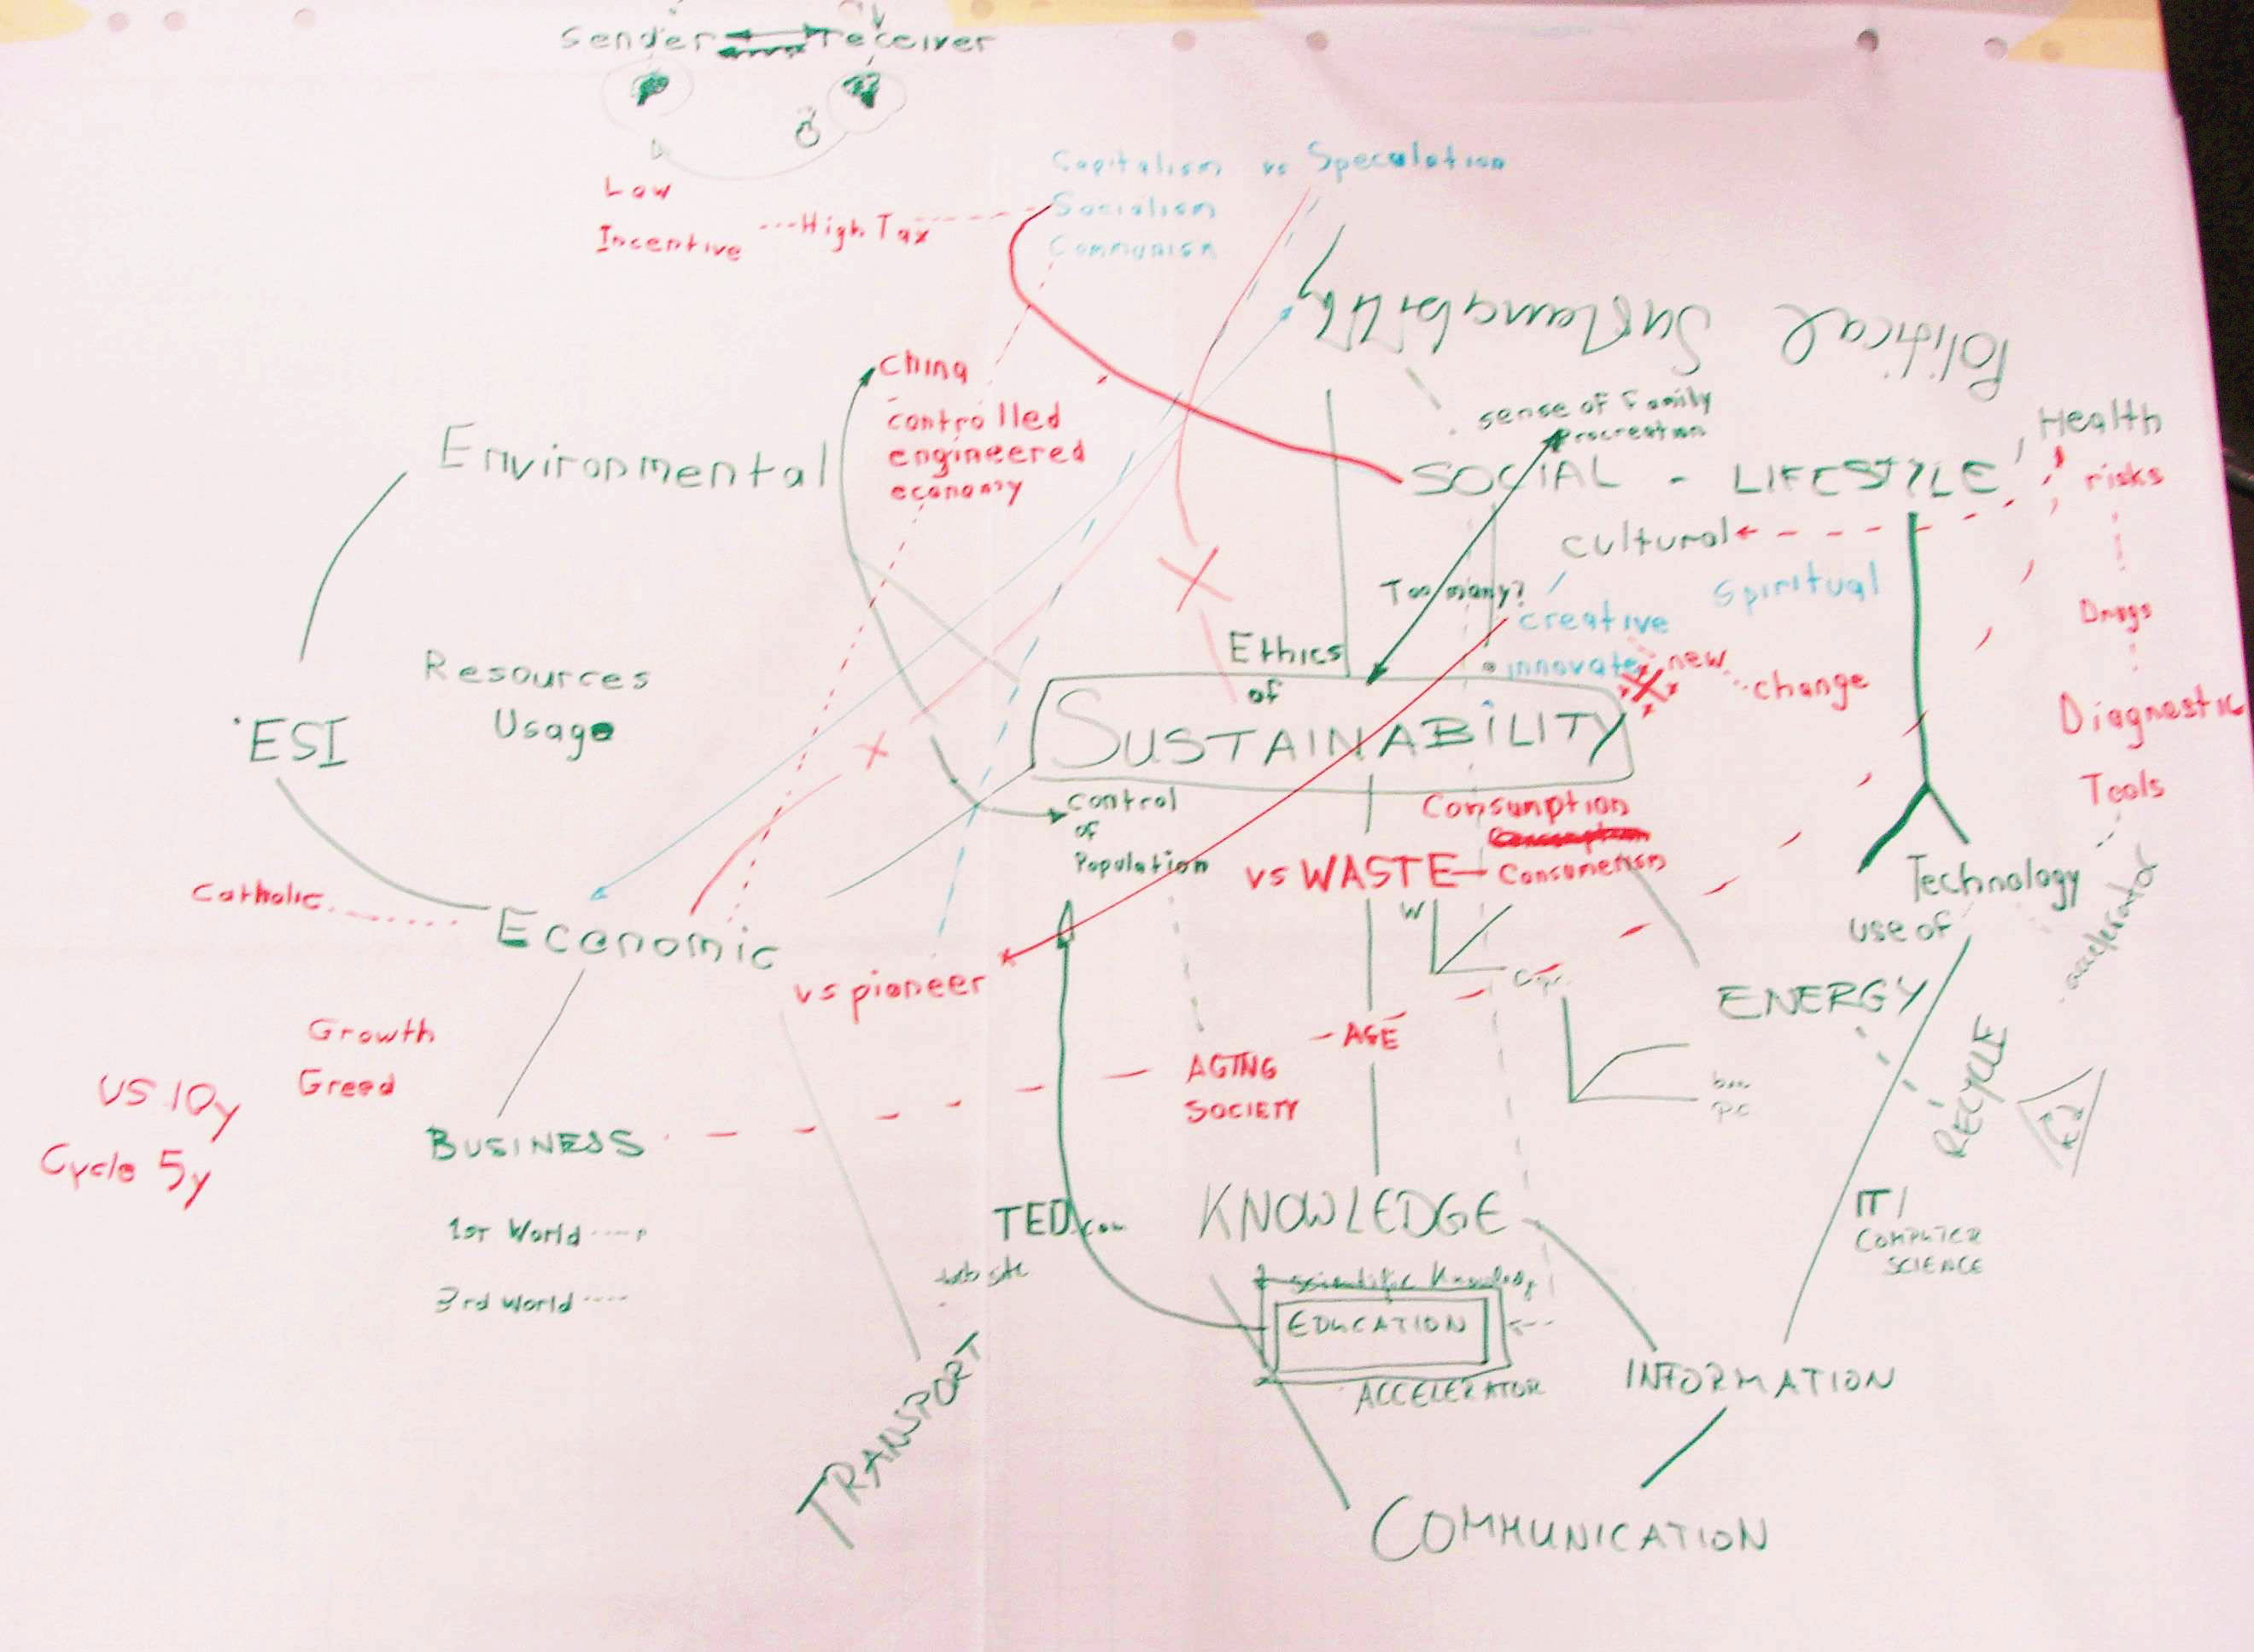 Sender receiver
Low
Incentive
High Tax
Capitalism vs Speculation
Socialism
Communism
Political Sustainability
China
controlled
engineered
economy
Environmental
sense of Family
Procreation
SOCIAL - LIFESTYLE
Health
risks
cultural
Spiritual
Too many?
creative
innovate
new
change
Drugs
Diagnostic
Tools
Resources
Usage
ESI
Ethics
of
SUSTAINABILITY
control
of
Population
Consumption
vs WASTE
Consumerism
W
Technology
use of
accelerator
Catholic
Economic
vs pioneer
ENERGY
RECYCLE
Growth
Greed
US 10y
Cycle 5y
AGE
AGING
SOCIETY
BUSINESS
1st World
3rd World
TED.com
web site
KNOWLEDGE
scientific
EDUCATION
ACCELERATOR
IT/
COMPUTER
SCIENCE
INFORMATION
TRANSPORT
COMMUNICATION